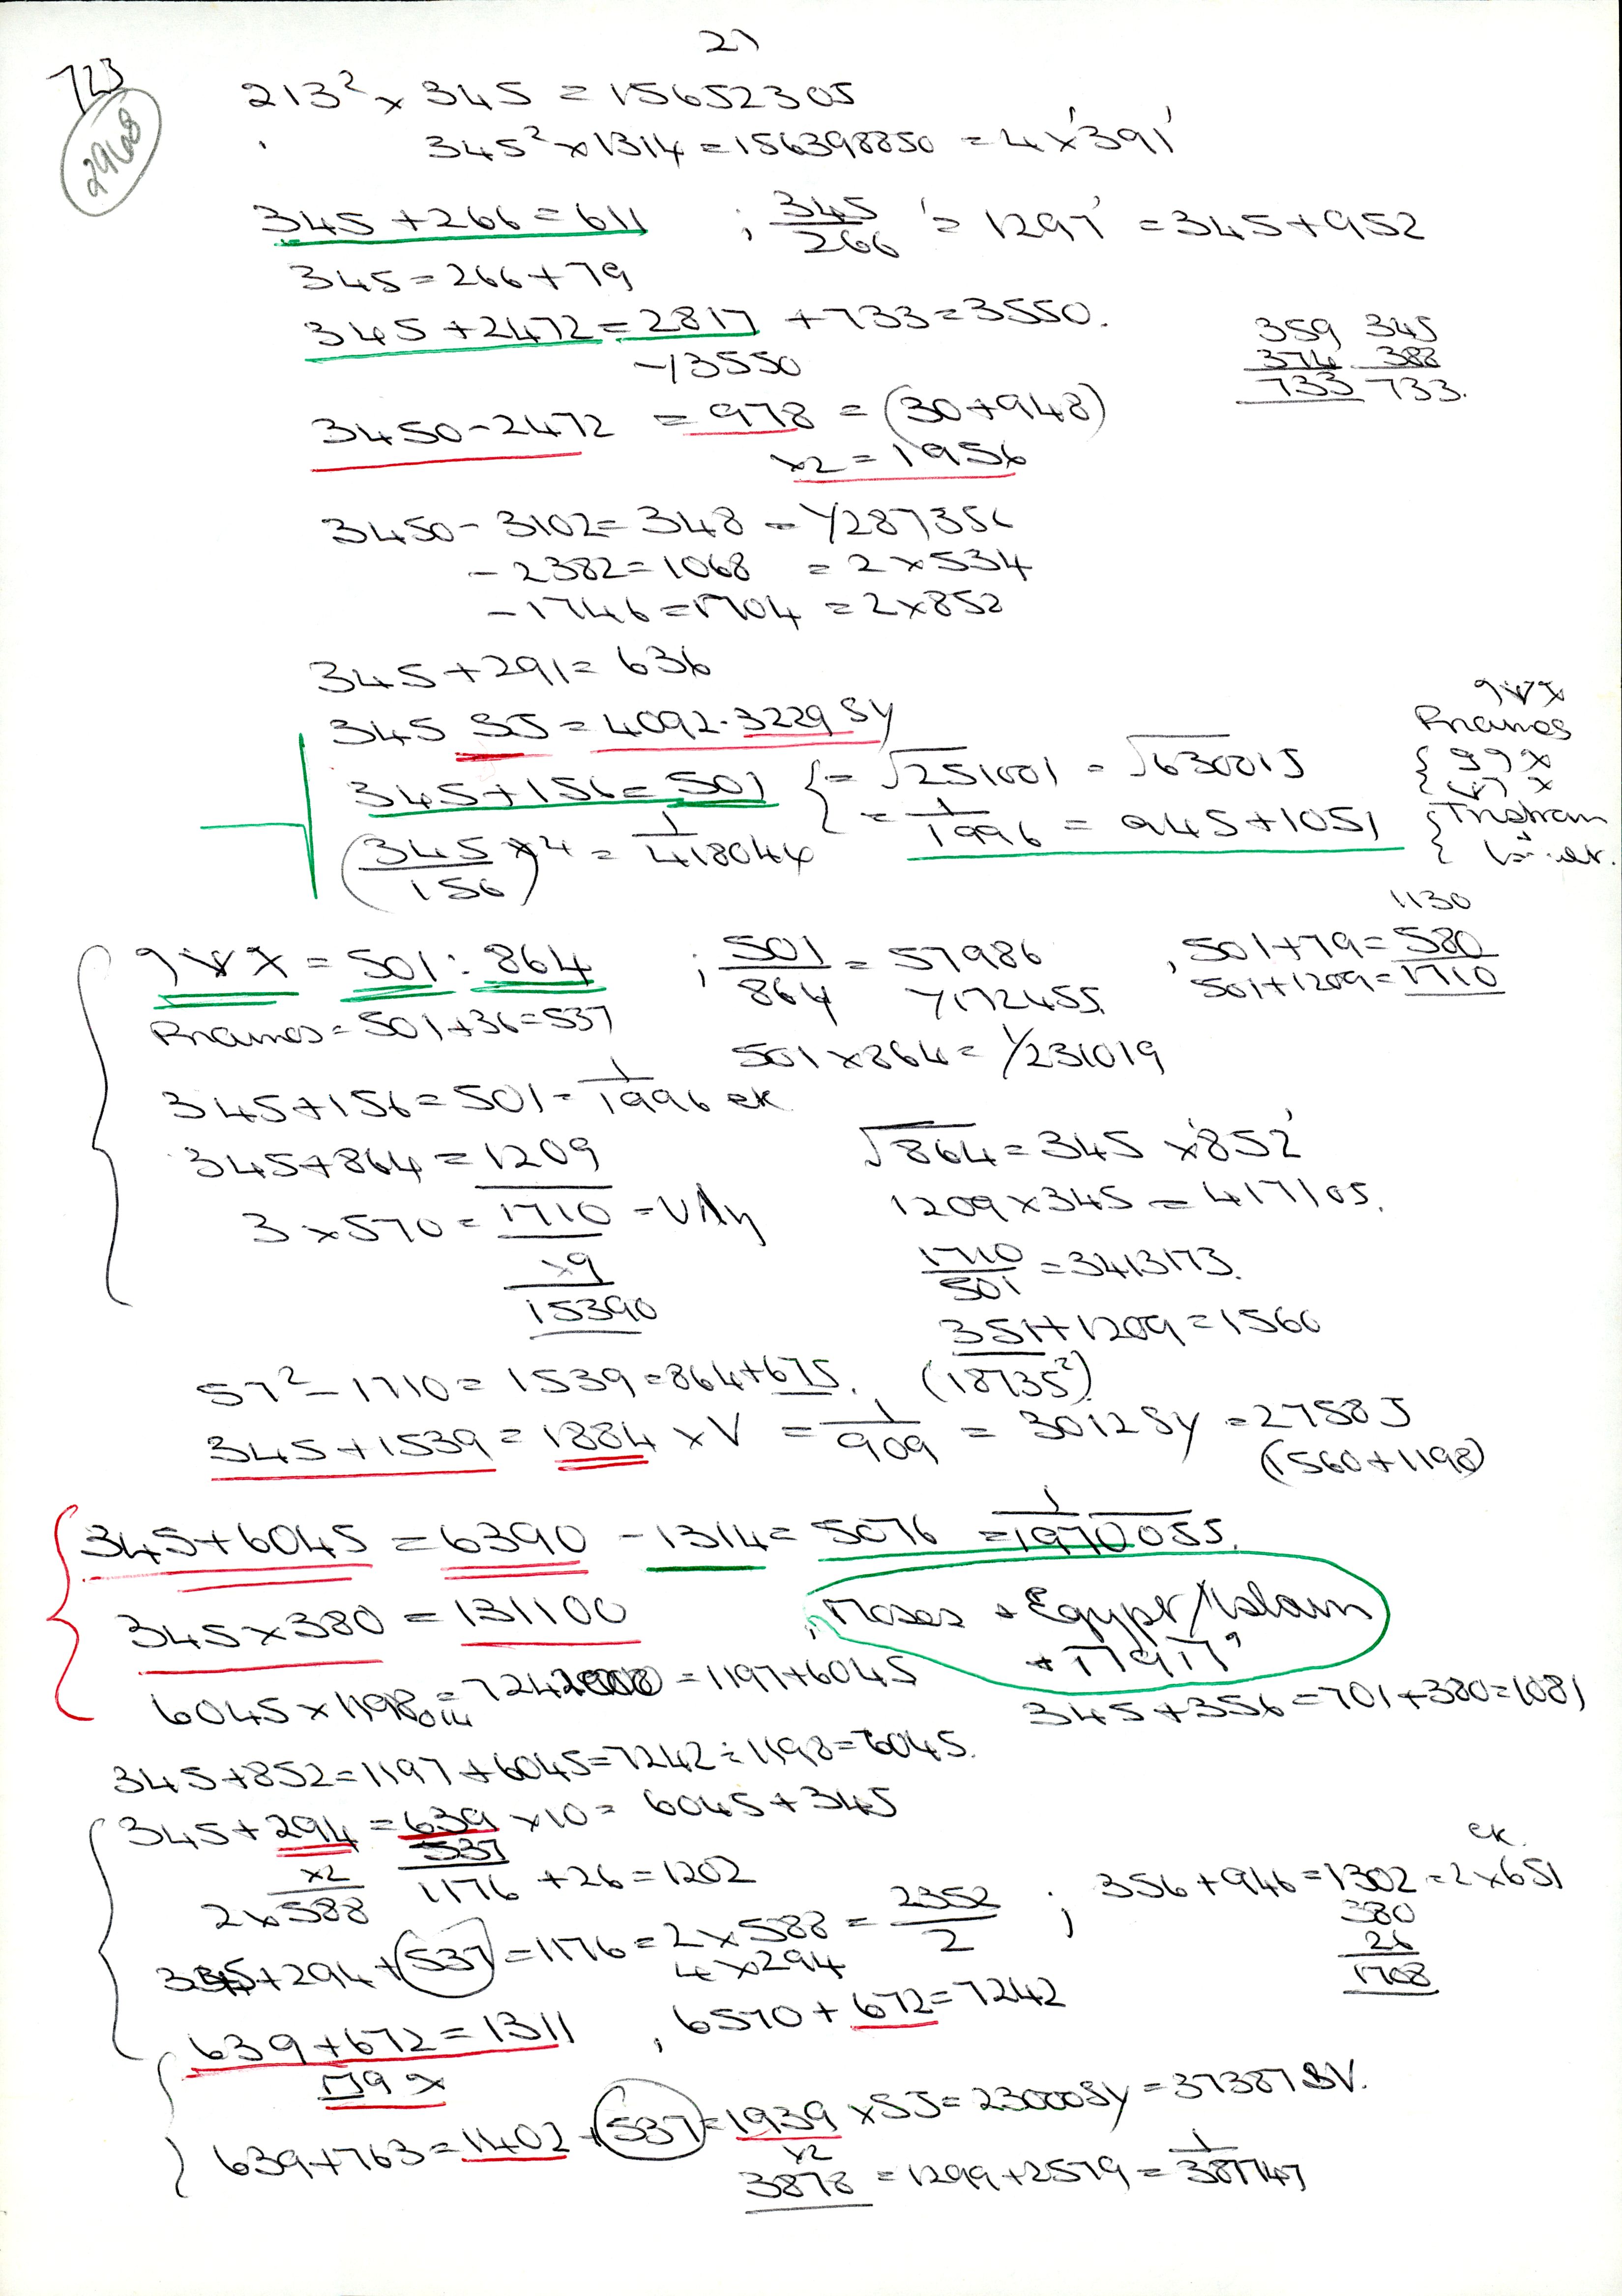 21
723
29168
213² × 345 = 15652305
345² × 1314 = 156398850 = 4 × '391'
345 + 266 = 611 ; 345/266 '= 1297' = 345 + 952
345 = 266 + 79
345 + 2472 = 2817 + 733 = 3550.
-/3550
359 345
374 388
733 733.
3450 - 2472 = 978 = (30 + 948)
×2 = 1956
3450 - 3102 = 348 = 1/287356
- 2382 = 1068 = 2 × 534
- 1746 = 1704 = 2 × 852
345 + 291 = 636
345 SJ = 4092.3229 Sy
345 + 156 = 501 { = √251001 = √630015
= 1/1996 = 945 + 1051
(345/156) × 4 = 1/418044
Tristram
1130
= 501 : 864 ; 501/864 = 57986 , 501 + 79 = 580
1/172455 501 + 1209 = 1710
= 501 + 36 = 537
501 × 864 = 1/231019
345 + 156 = 501 = 1/1996 ek
345 + 864 = 1209
√864 = 345 × '852'
3 × 570 = 1710
1209 × 345 = 417105.
×9
15390
1710/501 = 3413173.
351 + 1209 = 1560
57² - 1710 = 1539 = 864 + 675. (18735²)
345 + 1539 = 1884 × V = 1/909 = 3012 Sy = 2758 J
(1560 + 1198)
345 + 6045 = 6390 - 1314 = 5076 = 1/1970055.
345 × 380 = 131100
, Moses + Egypt/Islam
+ 17917'
6045 × 1198 = 7242 = 1197 + 6045
345 + 356 = 701 + 380 = 1081
345 + 852 = 1197 + 6045 = 7242 ÷ 1198 = 6045.
345 + 294 = 639 × 10 = 6045 + 345
×2 537
2 × 588 1176 + 26 = 1202
ek.
356 + 946 = 1302 = 2 × 651
380
26
1708
345 + 294 + 537 = 1176 = 2 × 588 = 2352/2 ;
4 × 294
639 + 672 = 1311 , 6570 + 672 = 7242
639 + 763 = 1402 + 537 = 1939 × SJ = 23000 Sy = 37387 SV.
×2
3878 = 1299 + 2579 = 1/387747